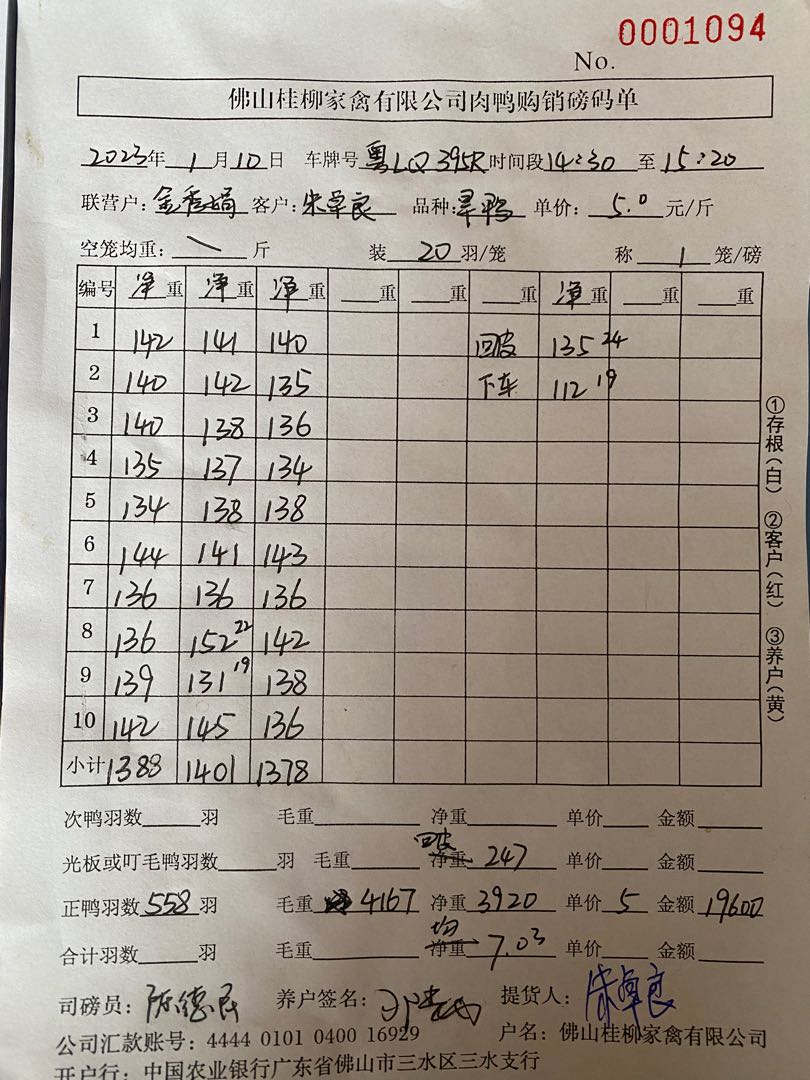 0001094
No.
佛山桂柳家禽有限公司肉鸭购销磅码单
2023年 1月10日 车牌号 粤LQ395R 时间段 14:30 至 15:20
联营户: 客户: 朱卓良 品种: 单价: 5.0 元/斤
空笼均重: \ 斤 装 20 羽/笼 称 1 笼/磅
编号 净重 净重 净重 重 重 重 净重 重 重
1 142 141 140 回皮 135 24
2 140 142 135 下车 112 19
3 140 138 136
4 135 137 134
5 134 138 138
6 144 141 143
7 136 136 136
8 136 152 22 142
9 139 131 19 138
10 142 145 136
小计 1388 1401 1378
次鸭羽数 羽 毛重 净重 单价 金额
光板或叮毛鸭羽数 羽 毛重 回皮 净重 247 单价 金额
正鸭羽数 558 羽 毛重 4167 净重 3920 单价 5 金额 19600
合计羽数 羽 毛重 均 净重 7.03 单价 金额
司磅员: 养户签名: 提货人: 朱卓良
公司汇款账号: 4444 0101 0400 16929 户名: 佛山桂柳家禽有限公司
开户行: 中国农业银行广东省佛山市三水区三水支行
①存根(白) ②客户(红) ③养户(黄)